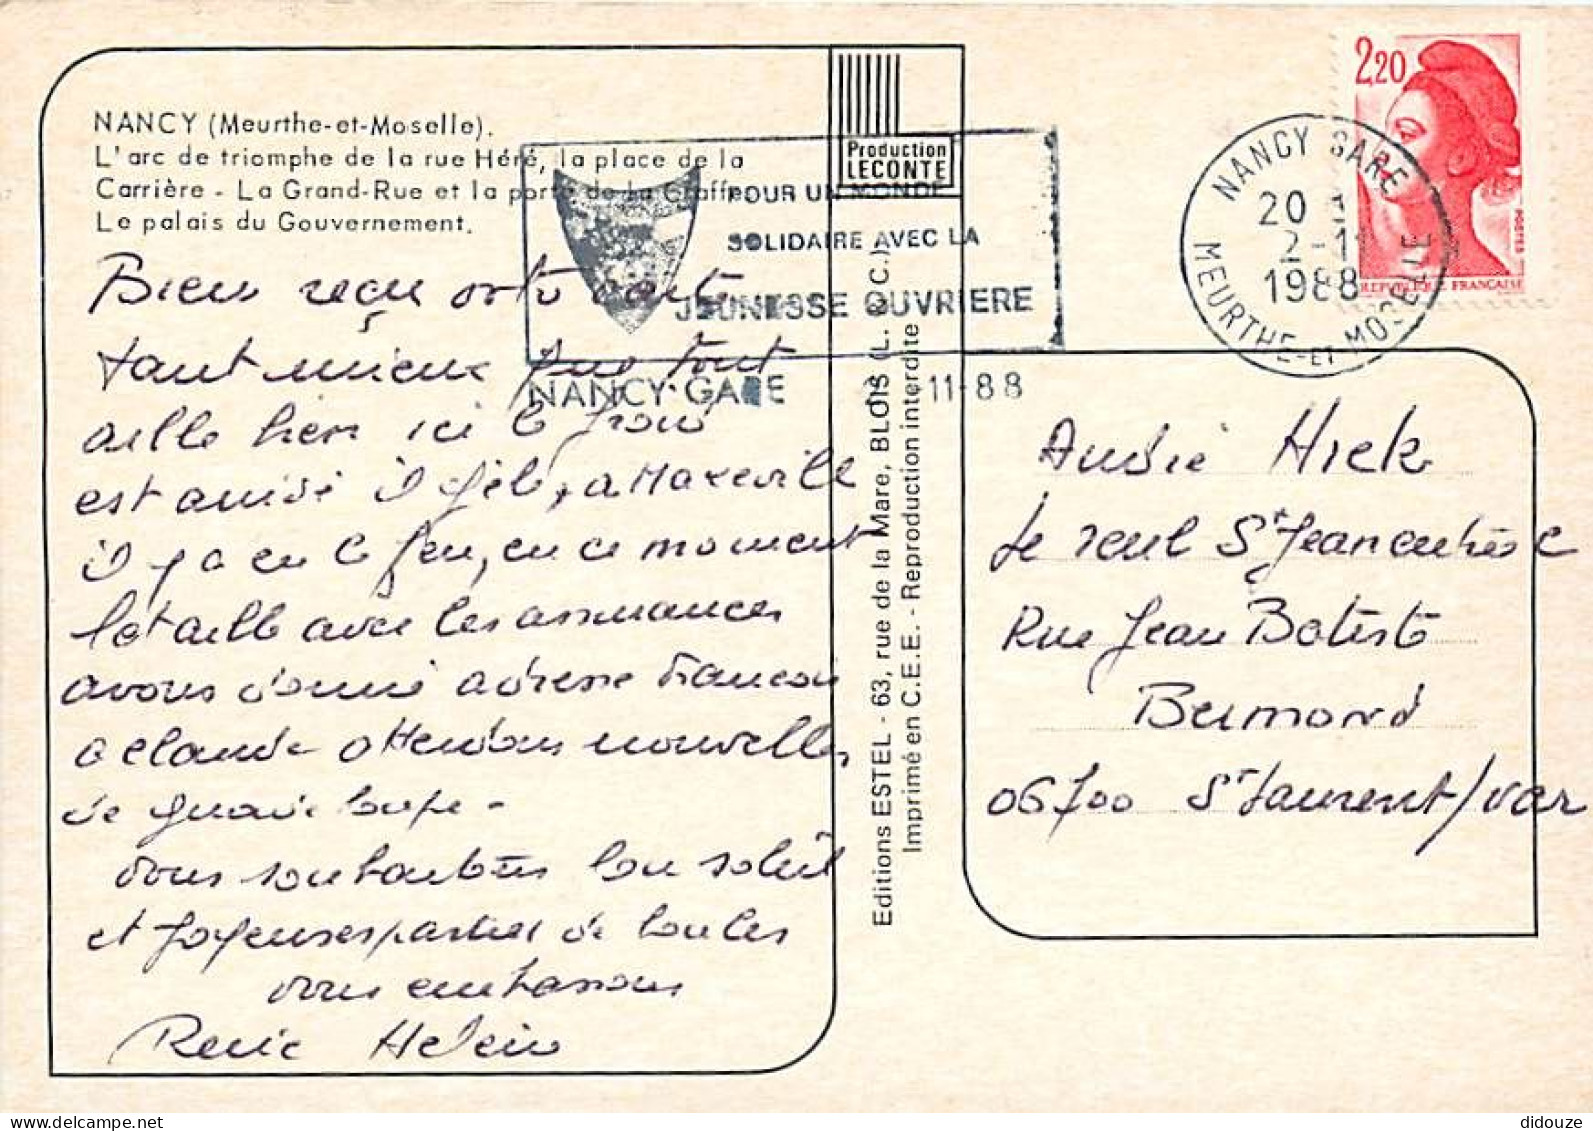 NANCY (Meurthe-et-Moselle).
L'arc de triomphe de la rue Héré, la place de la
Carrière - La Grand-Rue et la porte de la Graffe
Le palais du Gouvernement.
Bien reçu votre carte
tant mieux que tout
aille bien ici le froid
est arrivé il gèle, a Maxeville
il y a eu le feu, en ce moment
bataille avec les assurances
avons donné adresse Francois
a Claude attendons nouvelles
de
vous souhaitons bon soleil
et joyeuses parties de boules
vous embrassons
Renée Helein
Production
LECONTE
POUR UN MONDE
SOLIDAIRE AVEC LA
JEUNESSE OUVRIERE
NANCY-GARE 11-88
Editions ESTEL - 63, rue de la Mare, BLOIS (L. & C.)
Imprimé en C.E.E. - Reproduction interdite
2,20
POSTES
REPUBLIQUE FRANÇAISE
NANCY GARE
20 H
2-11
1988
MEURTHE-ET-MOSELLE
André Hick
Le St Jean
Rue Jean Batiste
Bermond
06700 St Laurent/var
delcampe.net
didouze